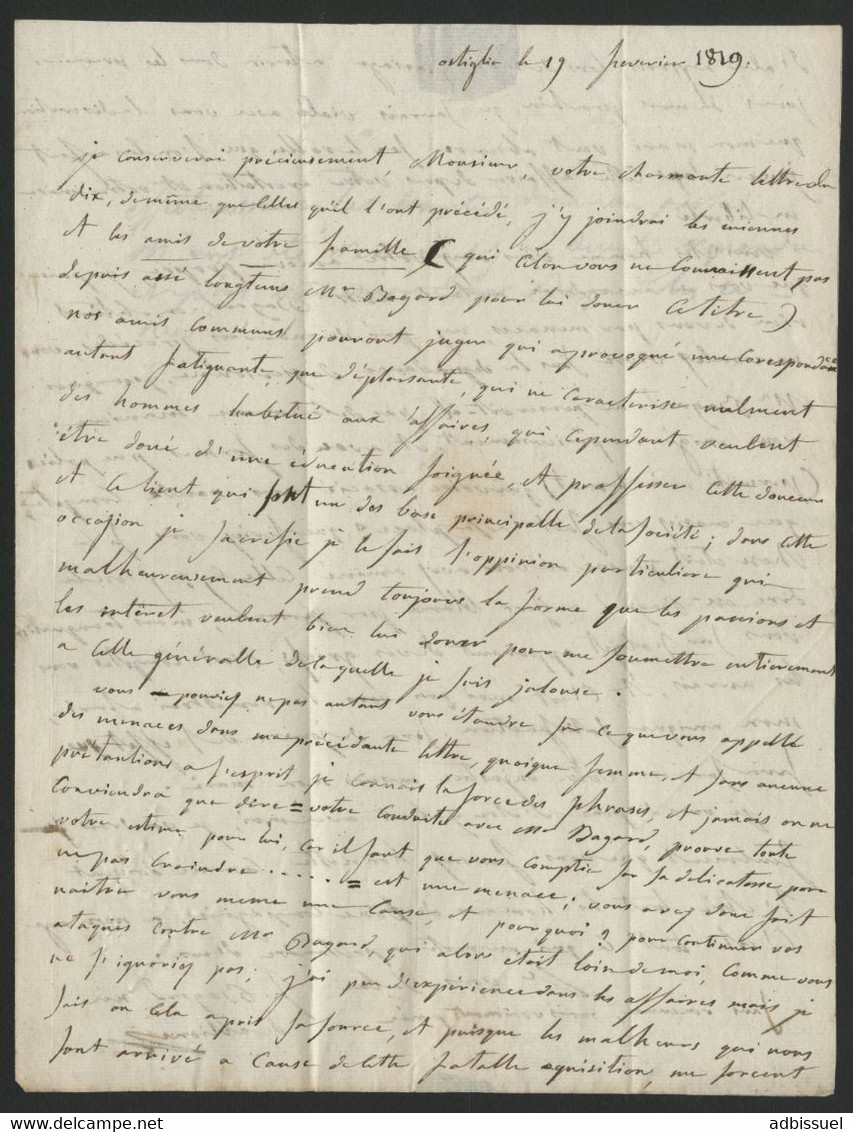 ostiglia le 19 fevrier 1819.
je conserverai précieusement, Monsieur, votre charmante lettre du
dix, de même que celles qu'il l'ont précédé, j'y joindrai les miennes
et les amis de votre famille ( qui selon vous ne connaissent pas
depuis assé longtems Mr Bagard pour lui doner ce titre )
nos amis communs pourront juger qui a provoqué une corespondance
autant fatiguante, que déplaisante, qui ne caracterise nulment
des hommes habitué aux affaires, qui cependant veulent
être doué d'une éducation soignée, et professer cette douceur
et ce lient qui font une des base principalle de la société; dans cette
occasion je sacrifie je le sais l'oppinion particuliere qui
malheureusement prend toujours la forme que les passions et
les intéret veulent bien lui doner pour me soumettre entierement
a celle généralle de laquelle je suis jalouse.
vous pouviez ne pas autant vous étandre sur ce que vous appellé
des menaces dans ma précédante lettre, quoique femme, et sans aucune
prétantions a l'esprit je connais la force des phrases, et jamais on ne
conviendra que dire = votre conduite avec Mr Bagard, prouve toute
votre estime pour lui, car il faut que vous comptié sur sa delicatesse pour
ne pas craindre ..... = est une menace; vous avez donc fait
naitre vous meme une cause, et pourquoi ? pour continuer vos
ataques contre Mr Bagard, qui alors était loin de moi, comme vous
ne l'ignoriez pas; j'ai peu d'expérience dans les affaires mais je
sais ou cela a pris sa source, et puisque les malheurs qui nous
sont arrivé a cause de cette fatalle aquisition, me forcent
adbissuel